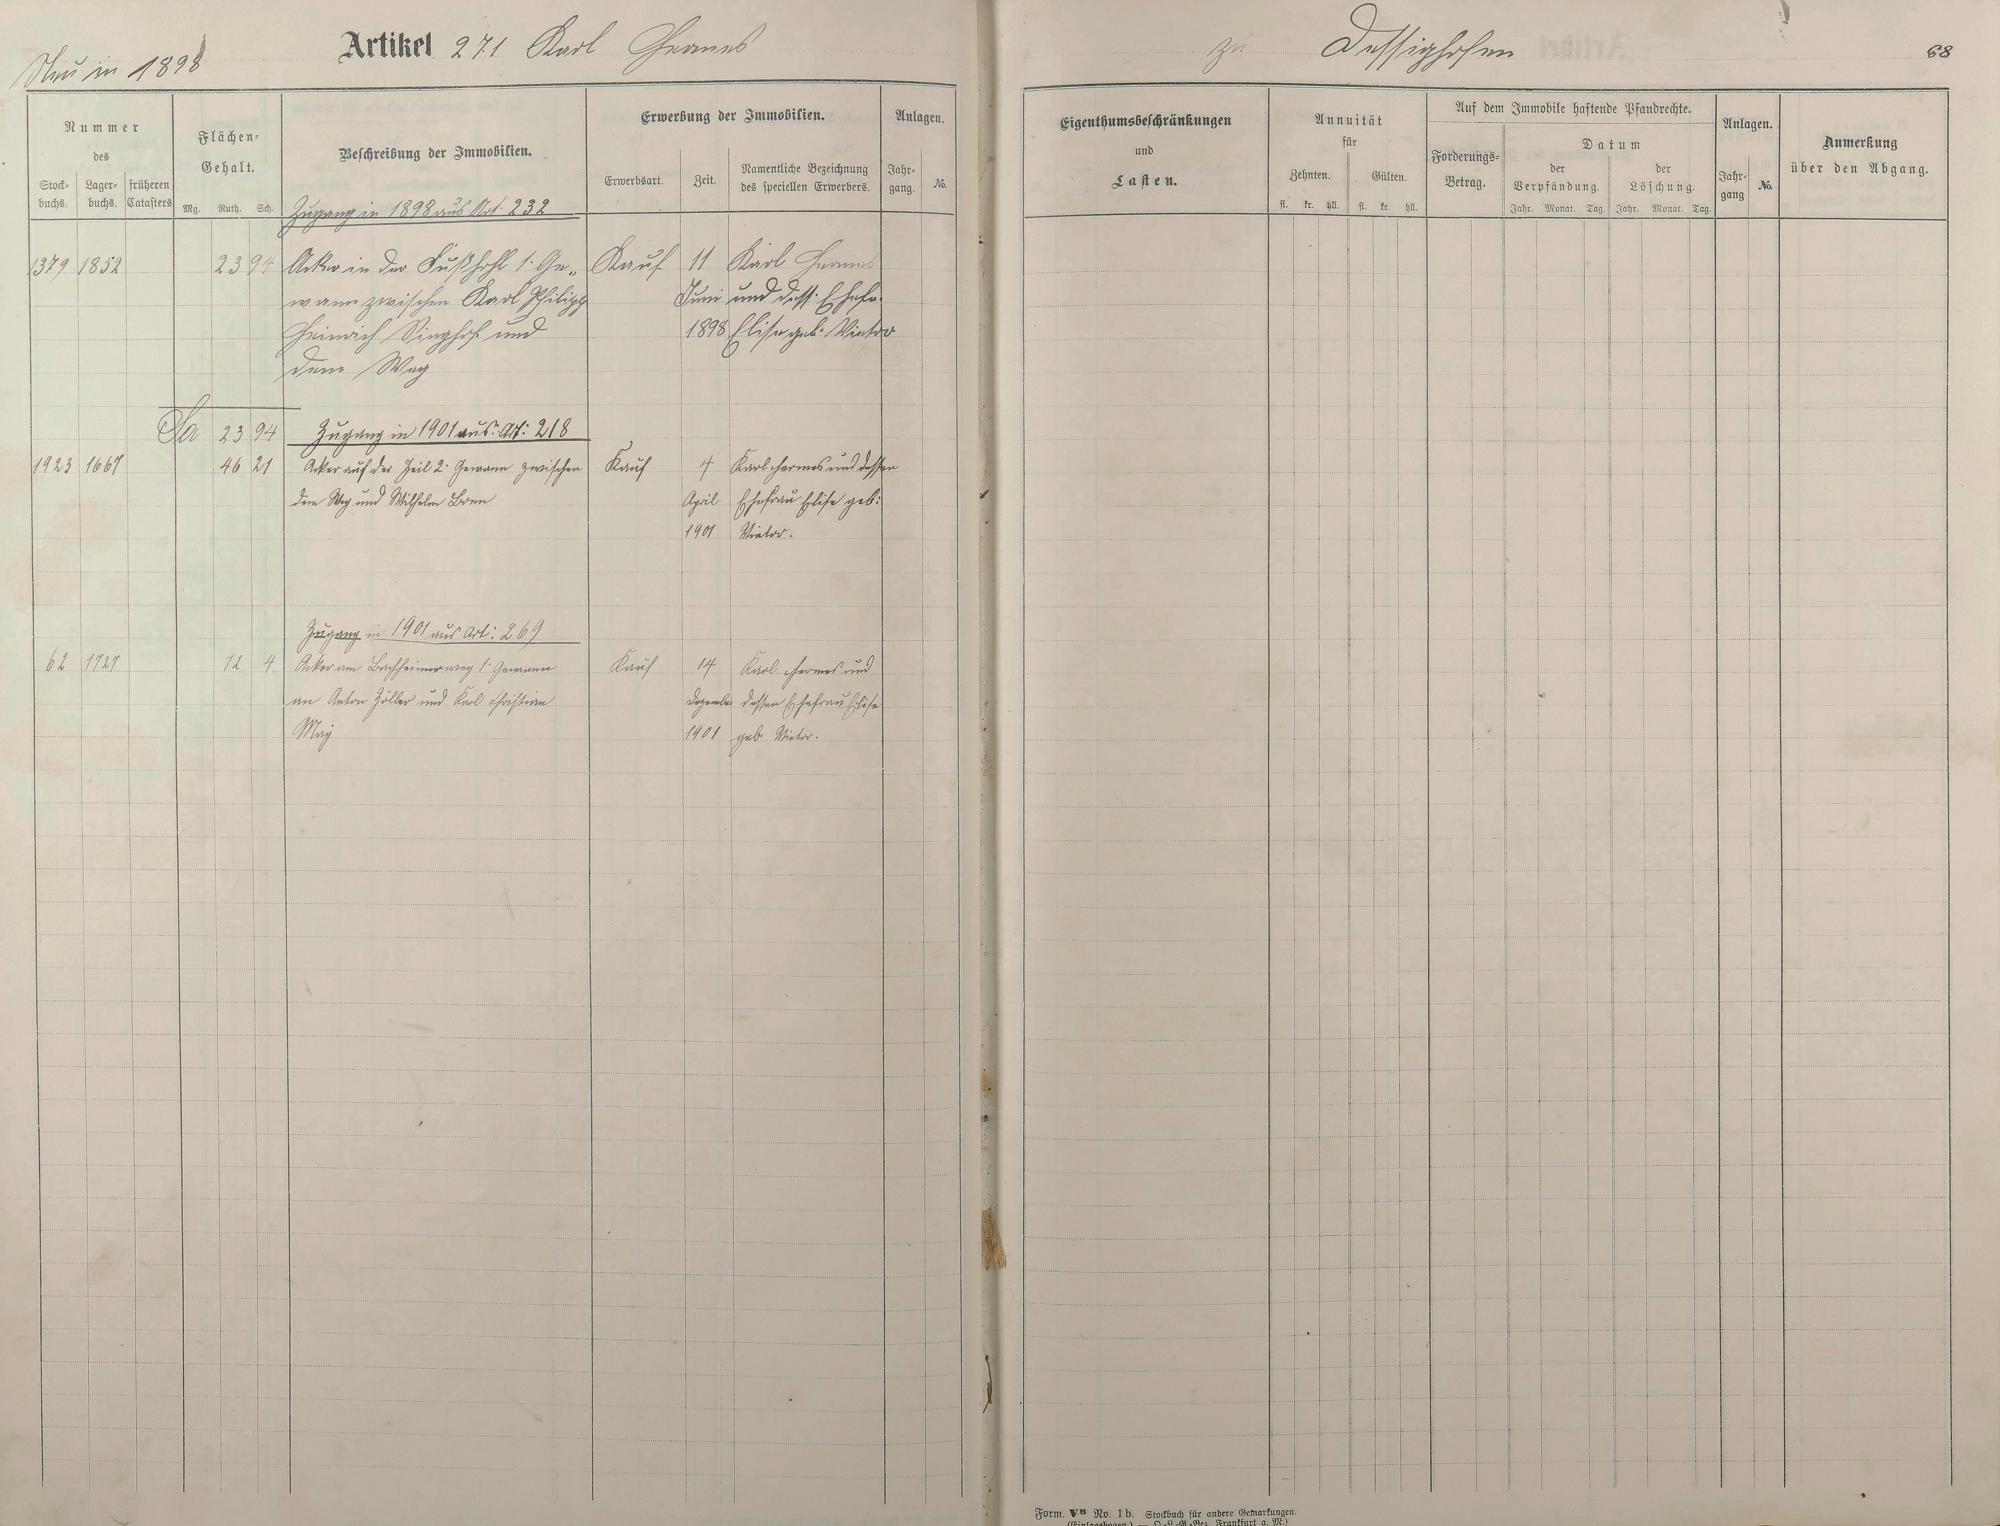 Neu in 1898
Artikel 271 Karl Hermes
zu Dessighofen
68
Nummer
des
Stock-
buchs.
Lager-
buchs.
früheren
Catasters
Flächen-
Gehalt.
Mg. Ruth. Sch.
Beschreibung der Immobilien.
Erwerbung der Immobilien.
Erwerbsart.
Zeit.
Namentliche Bezeichnung
des speciellen Erwerbers.
Anlagen.
Jahr-
gang.
No.
Eigenthumsbeschränkungen
und
Lasten.
Annuität
für
Zehnten.
fl. kr. hll.
Gülten.
fl. kr. hll.
Auf dem Immobile haftende Pfandrechte.
Forderungs-
Betrag.
Datum
der
Verpfändung.
Jahr. Monat. Tag.
der
Löschung.
Jahr. Monat. Tag.
Anlagen.
Jahr-
gang
No.
Anmerkung
über den Abgang.
Zugang in 1898 aus Art. 232
1379 1852 23 94 Acker in der Fußhohl 1. Ge„ Kauf 11 Karl Hermes
wann zwischen Karl Philipp Juni und dess. Ehefr.
Heinrich Singhof und 1898 Elise geb. Vietor
dem Weg
Sa 23 94 Zugang in 1901 aus Art: 218
1923 1667 46 21 Acker auf der Zeil 2. Gewann zwischen Kauf 4 Karl Hermes und dessen
dem Weg und Wilhelm Bonn April Ehefrau Elise geb:
1901 Vietor.
Zugang in 1901 aus Art: 269
62 1727 12 4 Acker am Bachheimerweg 1. Gewann Kauf 14 Karl Hermes und
an Anton Zöller und Karl Christian Dezember dessen Ehefrau Elise
May 1901 geb. Vietor.
Form. VB No. 1b. Stockbuch für andere Gemarkungen.
(Einlagebogen.) — O.-L.-G.-Bez. Frankfurt a. M.)